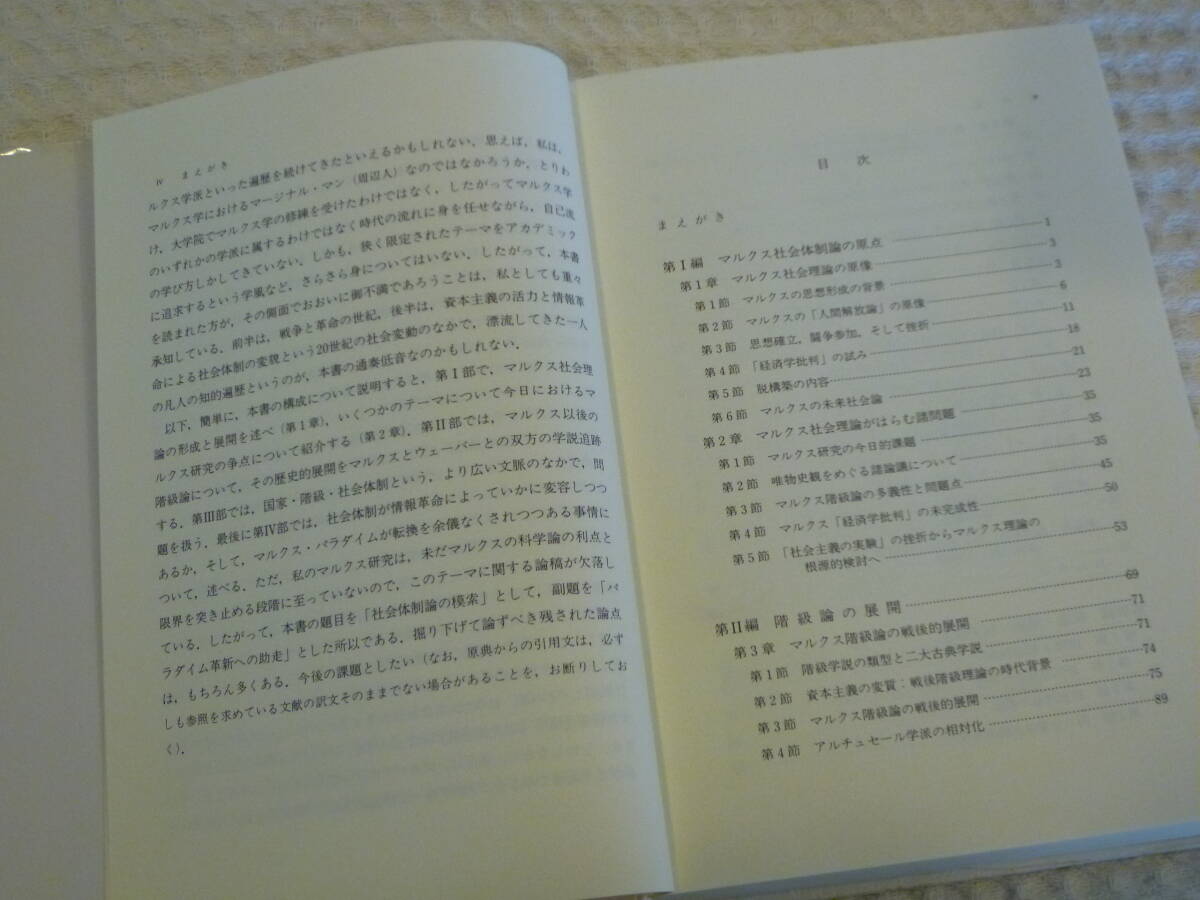 iv まえがき
ルクス学派といった遍歴を続けてきたといえるかもしれない．思えば，私は，
マルクス学におけるマージナル・マン（周辺人）なのではなかろうか．とりわ
け，大学院でマルクス学の修練を受けたわけではなく，したがってマルクス学
のいずれかの学派に属するわけではなく時代の流れに身を任せながら，自己流
の学び方しかしてきていない．しかも，狭く限定されたテーマをアカデミック
に追求するという学風など，さらさら身についてはいない．したがって，本書
を読まれた方が，その側面でおおいに御不満であろうことは，私としても重々
承知している．前半は，戦争と革命の世紀，後半は，資本主義の活力と情報革
命による社会体制の変貌という20世紀の社会変動のなかで，漂流してきた一人
の凡人の知的遍歴というのが，本書の通奏低音なのかもしれない．
以下，簡単に，本書の構成について説明すると，第Ⅰ部で，マルクス社会理
論の形成と展開を述べ（第1章），いくつかのテーマについて今日におけるマ
ルクス研究の争点について紹介する（第2章）．第Ⅱ部では，マルクス以後の
階級論について，その歴史的展開をマルクスとウェーバーとの双方の学説追跡
する．第Ⅲ部では，国家・階級・社会体制という，より広い文脈のなかで，問
題を扱う．最後に第Ⅳ部では，社会体制が情報革命によっていかに変容しつつ
あるか，そして，マルクス・パラダイムが転換を余儀なくされつつある事情に
ついて，述べる．ただ，私のマルクス研究は，未だマルクスの科学論の利点と
限界を突き止める段階に至っていないので，このテーマに関する論稿が欠落し
ている．したがって，本書の題目を「社会体制論の模索」として，副題を「パ
ラダイム革新への助走」とした所以である．掘り下げて論ずべき残された論点
は，もちろん多くある．今後の課題としたい（なお，原典からの引用文は，必ず
しも参照を求めている文献の訳文そのままでない場合があることを，お断りしてお
く）．
目 次
まえがき
第Ⅰ編 マルクス社会体制論の原点 1
第1章 マルクス社会理論の原像 3
第1節 マルクスの思想形成の背景 3
第2節 マルクスの「人間解放論」の原像 6
第3節 思想確立，闘争参加，そして挫折 11
第4節 「経済学批判」の試み 18
第5節 脱構築の内容 21
第6節 マルクスの未来社会論 23
第2章 マルクス社会理論がはらむ諸問題 35
第1節 マルクス研究の今日的課題 35
第2節 唯物史観をめぐる諸論議について 35
第3節 マルクス階級論の多義性と問題点 45
第4節 マルクス「経済学批判」の未完成性 50
第5節 「社会主義の実験」の挫折からマルクス理論の
根源的検討へ 53
第Ⅱ編 階級論の展開 69
第3章 マルクス階級論の戦後的展開 71
第1節 階級学説の類型と二大古典学説 71
第2節 資本主義の変質：戦後階級理論の時代背景 74
第3節 マルクス階級論の戦後的展開 75
第4節 アルチュセール学派の相対化 89